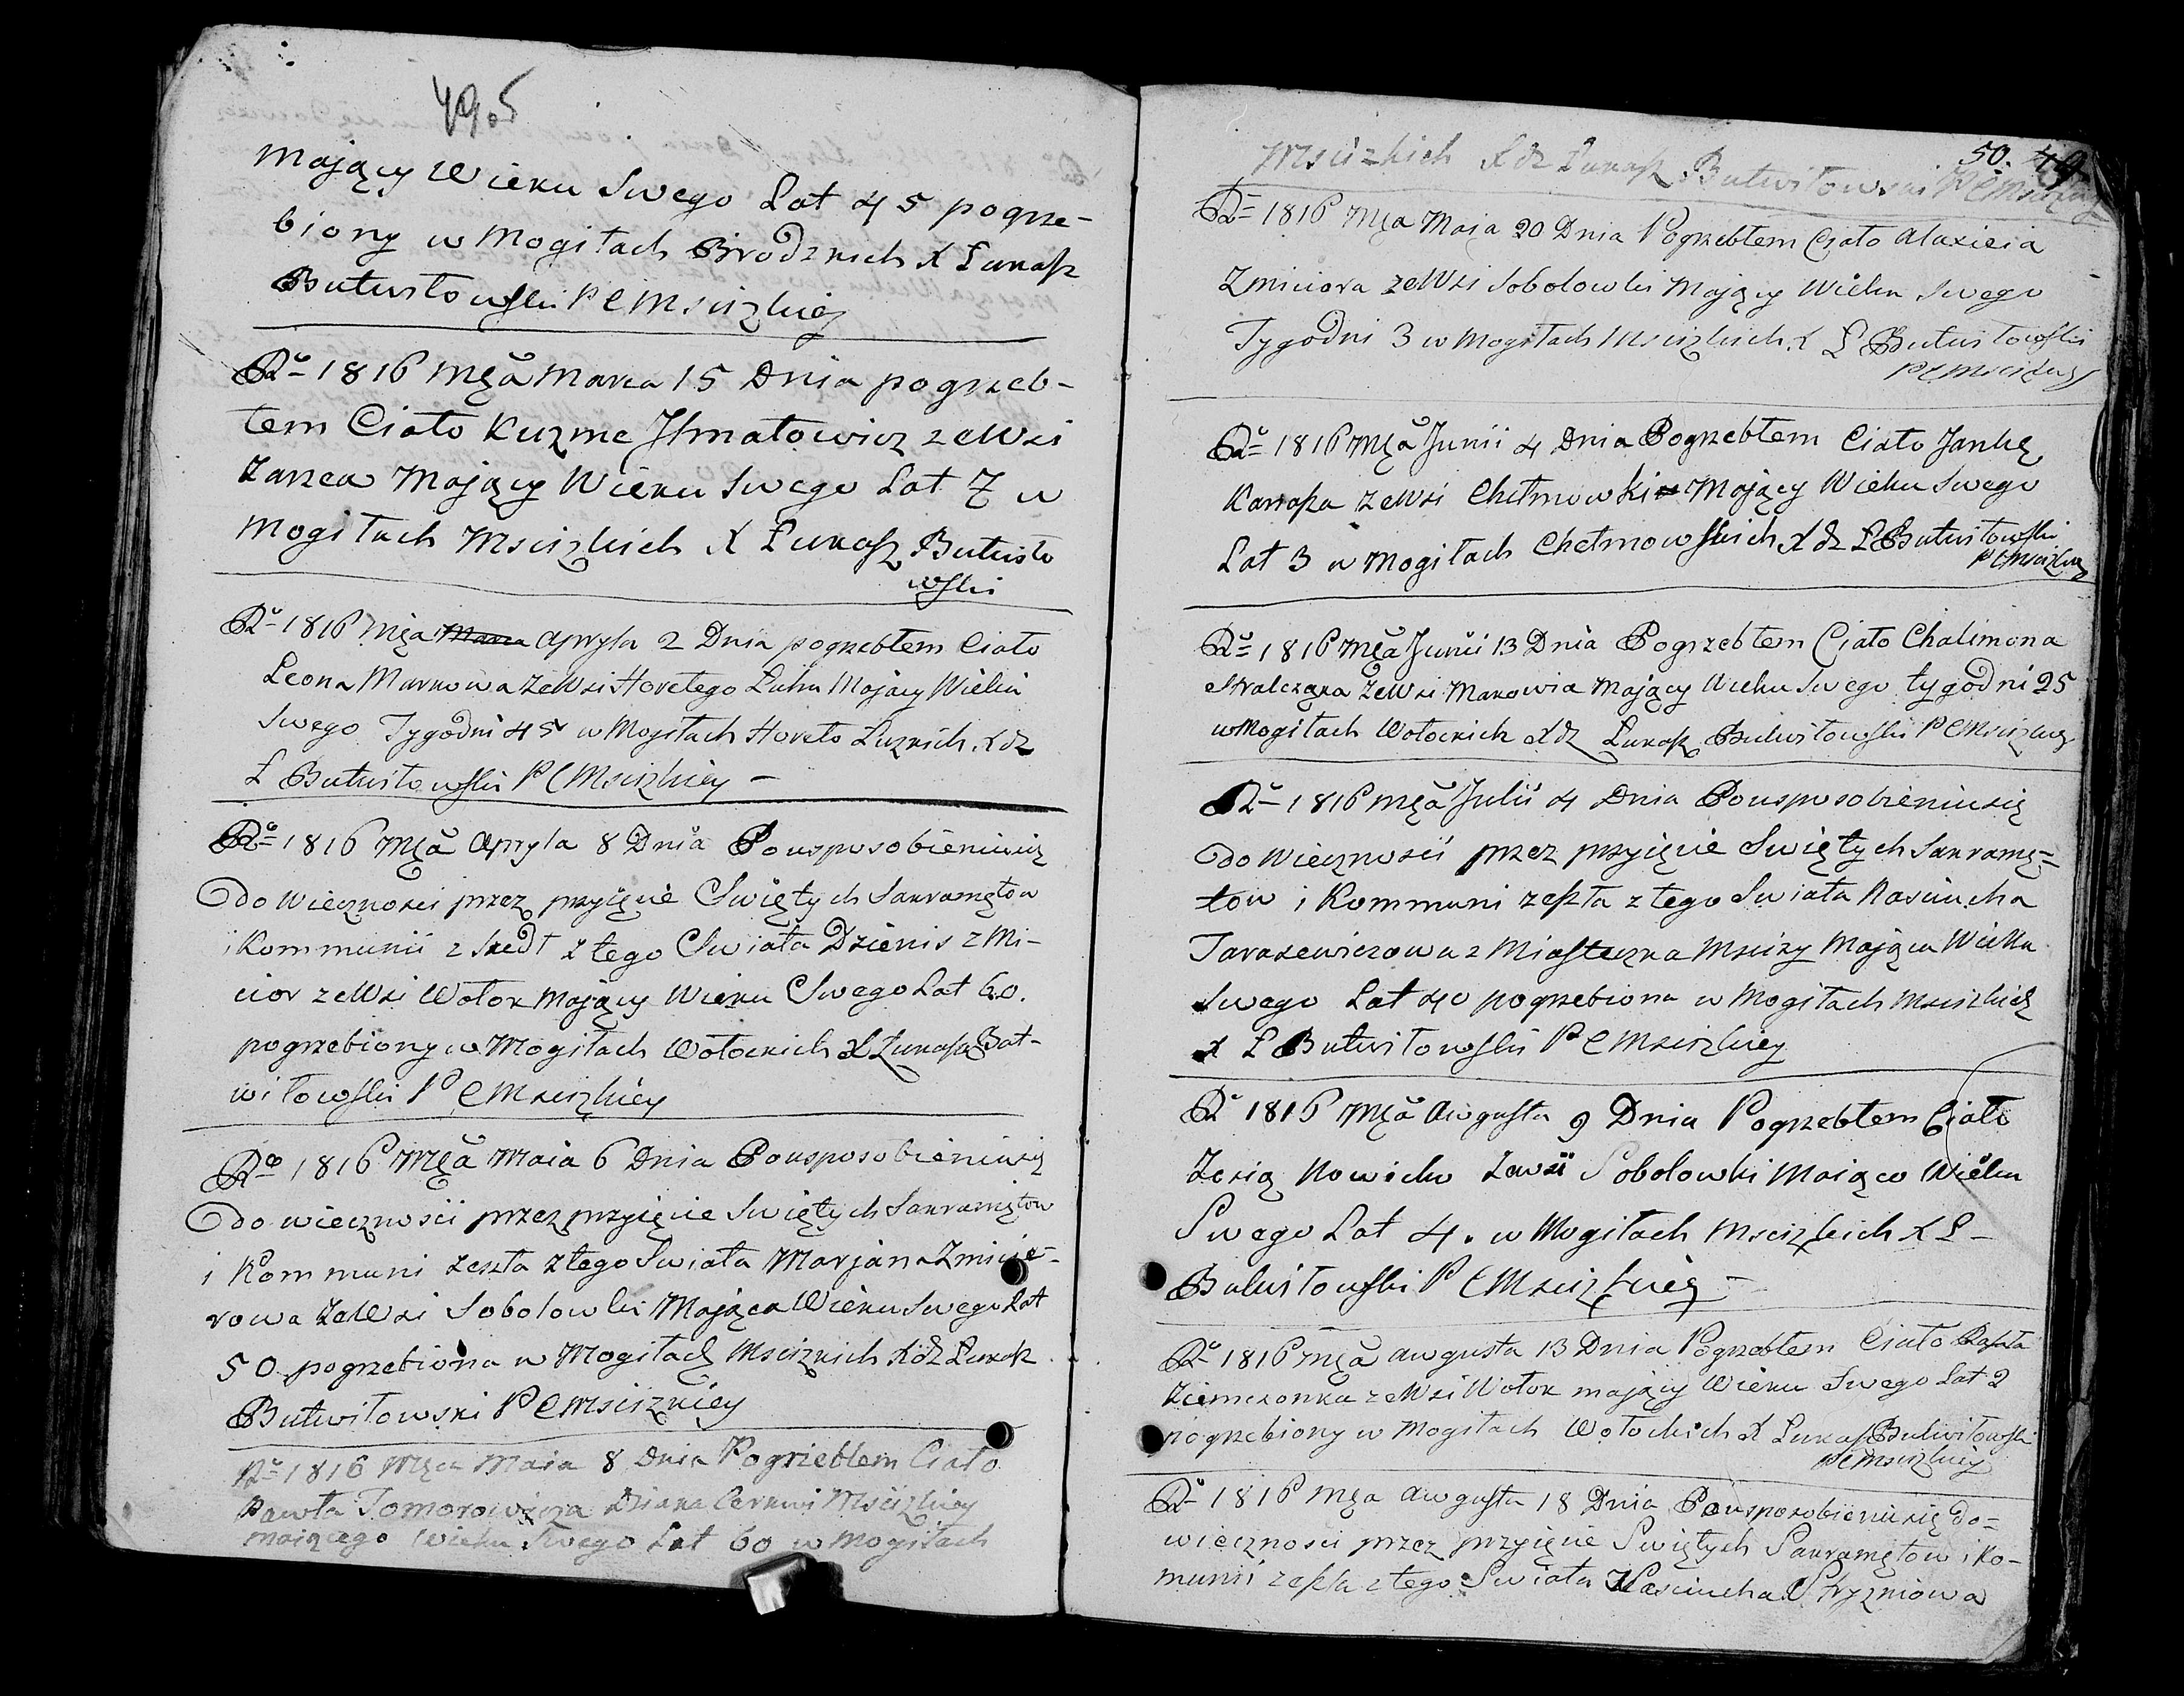 49.5
mający Wieku Swego Lat 45 pogrze-
biony w Mogiłach Brodzkich X Łukasz
Butwiłowski P C Mscizkiey
Rº 1816 Mca Marca 15 Dnia pogrzeb-
łem Ciało Kuzme Jhnatowicz ze Wsi
Zarzea Mający Wieku Swego Lat 7 w
Mogiłach Mscizkich X Łukasz Butwiło
wski
Rº 1816 Mca Marca Apryla 2 Dnia pogrzebłem Ciało
Leona Markowa ze Wsi Horełego Ługu Mający Wieku
Swego Tygodni 45 w Mogiłach Horeło Luzkich Xdz
Ł Butwiłowski P C Mscizkiey
Rº 1816 Mca Apryla 8 Dnia Po usposobieniu się
do Wieczności przez przyięcie Swiętych Sakramętow
i Kommunii zszedł z tego Swiata Dzienis Zmi-
cior ze Wsi Wołok Mający Wieku Swego Lat 60.
pogrzebiony w Mogiłach Wołockich X Łukasz But-
wiłowski P C Mscizkiey
Rº 1816 Mca Maia 6 Dnia Po usposobieniu się
do wiecznosci przez przyięcie Swiętych Sakramętow
i Kommuni zeszła z tego Swiata Marjana Zmicie-
rowa ze Wsi Sobolowki Mająca Wieku Swego Lat
50 pogrzebiona w Mogiłach Mscizkich Xdz Łukasz
Butwiłowski P C Mscizkiey
Rº 1816 Mca Maia 8 Dnia Pogrzebłem Ciało
Pawła Tomorowicza Dziaka Cerkwi Mscizkiey
maiącego Wieku Swego Lat 60 w Mogiłach
50. 49
Mscizkich Xdz Łukasz Butwiłowski P C Mscizkiey
Rº 1816 Mca Maja 20 Dnia Pogrzebłem Ciało Alaxieia
Zmiciora ze Wsi Sobolowki Mający Wieku Swego
Tygodni 3 w Mogiłach Mscizkich X Ł Butwiłowski
P C Mscizkiey
Rº 1816 Mca Junii 4 Dnia Pogrzebłem Ciało Jankę
Karaska ze Wsi Chełmowki Mający Wieku Swego
Lat 3 w Mogiłach Chełmowskich Xdz Ł Butwiłowski
P C Mscizkiey
Rº 1816 Mca Junii 13 Dnia Pogrzebłem Ciało Chalimona
Skalcząka ze Wsi Makowia Mający Wieku Swego tygodni 25
w Mogiłach Wołockich Xdz Łukasz Butwiłowski P C Mscizkiey
Rº 1816 Mca Julii 4 Dnia Po usposobieniu się
do Wiecznosci przez przyięcie Swiętych Sakramę-
tow i Kommuni zeszła z tego Swiata Nasciucha
Tarasewiczowa z Miasteczka Mscizy Mająca Wieku
Swego Lat 40 pogrzebiona w Mogiłach Mscizkich
X Ł Butwiłowski P C Mscizkiey
Rº 1816 Mca Augusta 9 Dnia Pogrzebłem Ciało
Zosią Nowicku Zewsii Sobolowki Maiąco Wieku
Swego Lat 4. w Mogiłach Mscizkich X Ł
Butwiłowski P C Mscizkiey
Rº 1816 Mca Augusta 13 Dnia Pogrzebłem Ciało
Ziemczonka ze Wsi Wołok mający Wieku Swego Lat 2
pogrzebiony w Mogiłach Wołockich X Łukasz Butwiłowski
P C Mscizkiey
Rº 1816 Mca Augusta 18 Dnia Po usposobieniu się do-
wiecznosci przez przyięcie Swiętych Sakramętow i Ko-
munii zeszła z tego Swiata Nasciucha Stryzniowa